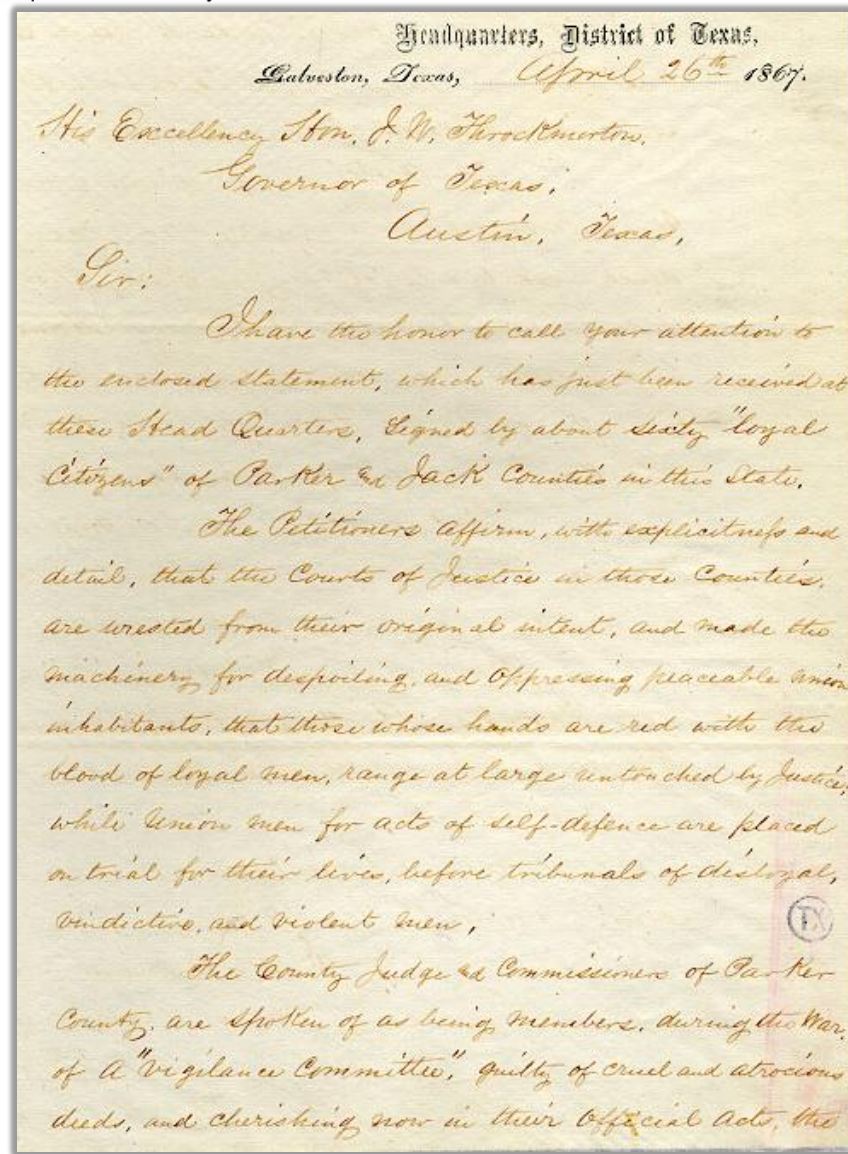 Headquarters, District of Texas,
Galveston, Texas, April 26th 1867.
His Excellency Hon. J. W. Throckmorton,
Governor of Texas,
Austin, Texas,
Sir:
I have the honor to call your attention to
the enclosed statement, which has just been received at
these Head Quarters, Signed by about sixty "loyal
Citizens" of Parker and Jack Counties in this State.
The Petitioners affirm, with explicitness and
detail, that the Courts of Justice in those Counties,
are wrested from their original intent, and made the
machinery for despoiling, and oppressing peaceable Union
inhabitants, that those whose hands are red with the
blood of loyal men, range at large untouched by Justice,
while Union men for acts of self-defence are placed
on trial for their lives, before tribunals of disloyal,
vindictive, and violent men,
TX
The County Judge and Commissioners of Parker
County, are spoken of as being members, during the War,
of a "Vigilance Committee", guilty of cruel and atrocious
deeds, and cherishing now in their official acts, the